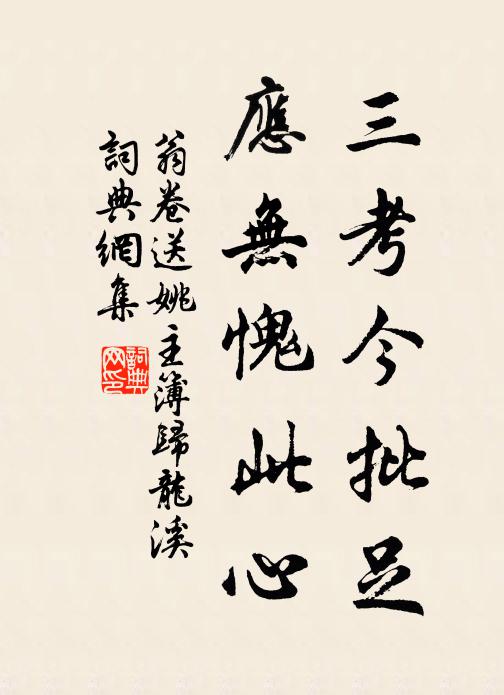 三考今批足
應無愧此心
翁卷送姚主簿歸龍溪
詞典網集
詞典网印